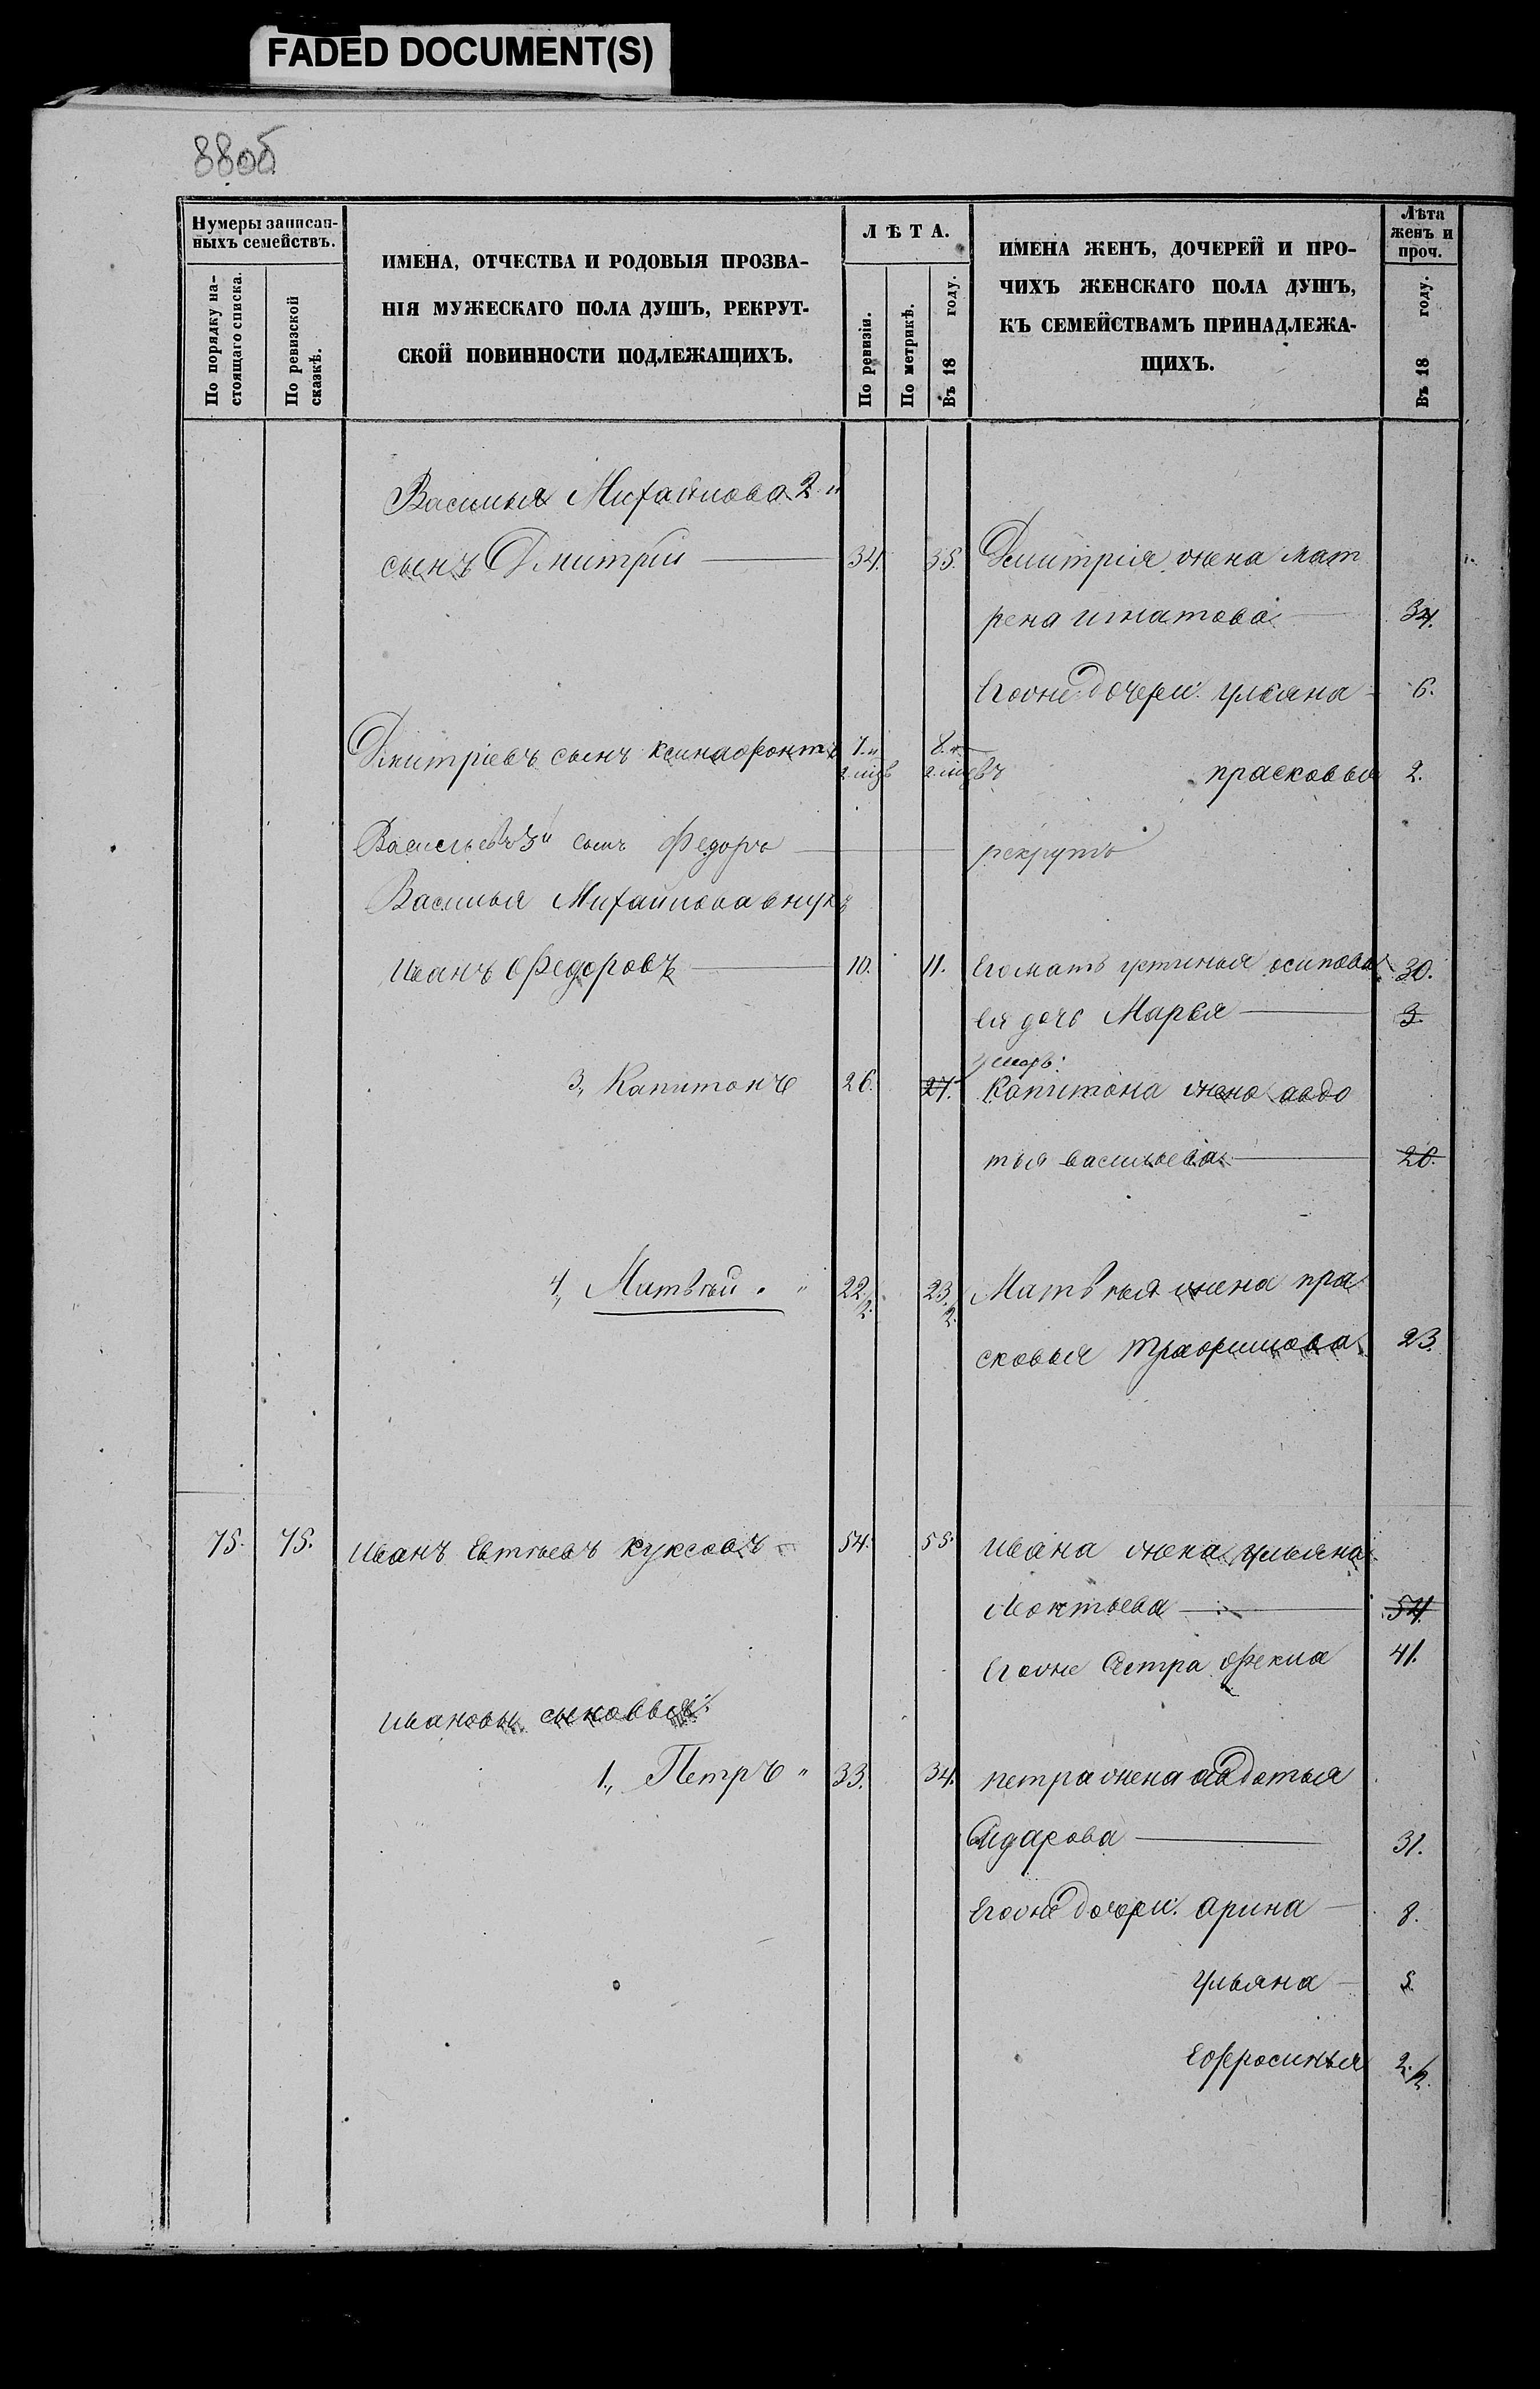 FADED DOCUMENT(S)
88об
Нумеры записан-
ныхъ семействъ.
По порядку на-
стоящаго списка.
По ревизской
сказкѣ.
ИМЕНА, ОТЧЕСТВА И РОДОВЫЯ ПРОЗВА-
НІЯ МУЖЕСКАГО ПОЛА ДУШЪ, РЕКРУТ-
СКОЙ ПОВИННОСТИ ПОДЛЕЖАЩИХЪ.
ЛѢТА.
По ревизіи.
По метрикѣ.
Въ 18 году.
ИМЕНА ЖЕНЪ, ДОЧЕРЕЙ И ПРО-
ЧИХЪ ЖЕНСКАГО ПОЛА ДУШЪ,
КЪ СЕМЕЙСТВАМЪ ПРИНАДЛЕЖА-
ЩИХЪ.
Лѣта
женъ и
проч.
Въ 18 году.
Василья Михайлова 2й
сынъ Дмитрій 34. 35. Дмитрія жена Мат
рена игнатова 34.
Егоже дочери: ульяна 6.
Дмитріевъ сынъ ксинафонтъ 7.и 8.и
прасковья 2.
Васильевъ 3й сынъ Федоръ рекрутъ
Василья Михайлова внукъ
иванъ Федоровъ 10. 11. Егомать устинья осипова 30.
Ея дочь Марья 3.
умеръ:
3, Капитонъ 26. 27. Капитона жена авдо
тья васильева 26.
4, Матвѣй 22 1/2. 23 1/2. Матвѣя жена пра
сковья трафимова 23.
75. 75. иванъ Евтѣевъ куксовъ 54. 55. ивана жена ульяна
Леонтьева 54.
Егоже Сестра Фекла 41.
ивановы сыновья:
1, Петръ 33. 34. петра жена авдотья
Сидарова 31.
Егоже дочери: арина 8.
ульяна 5.
Ефросинья 2 1/2.